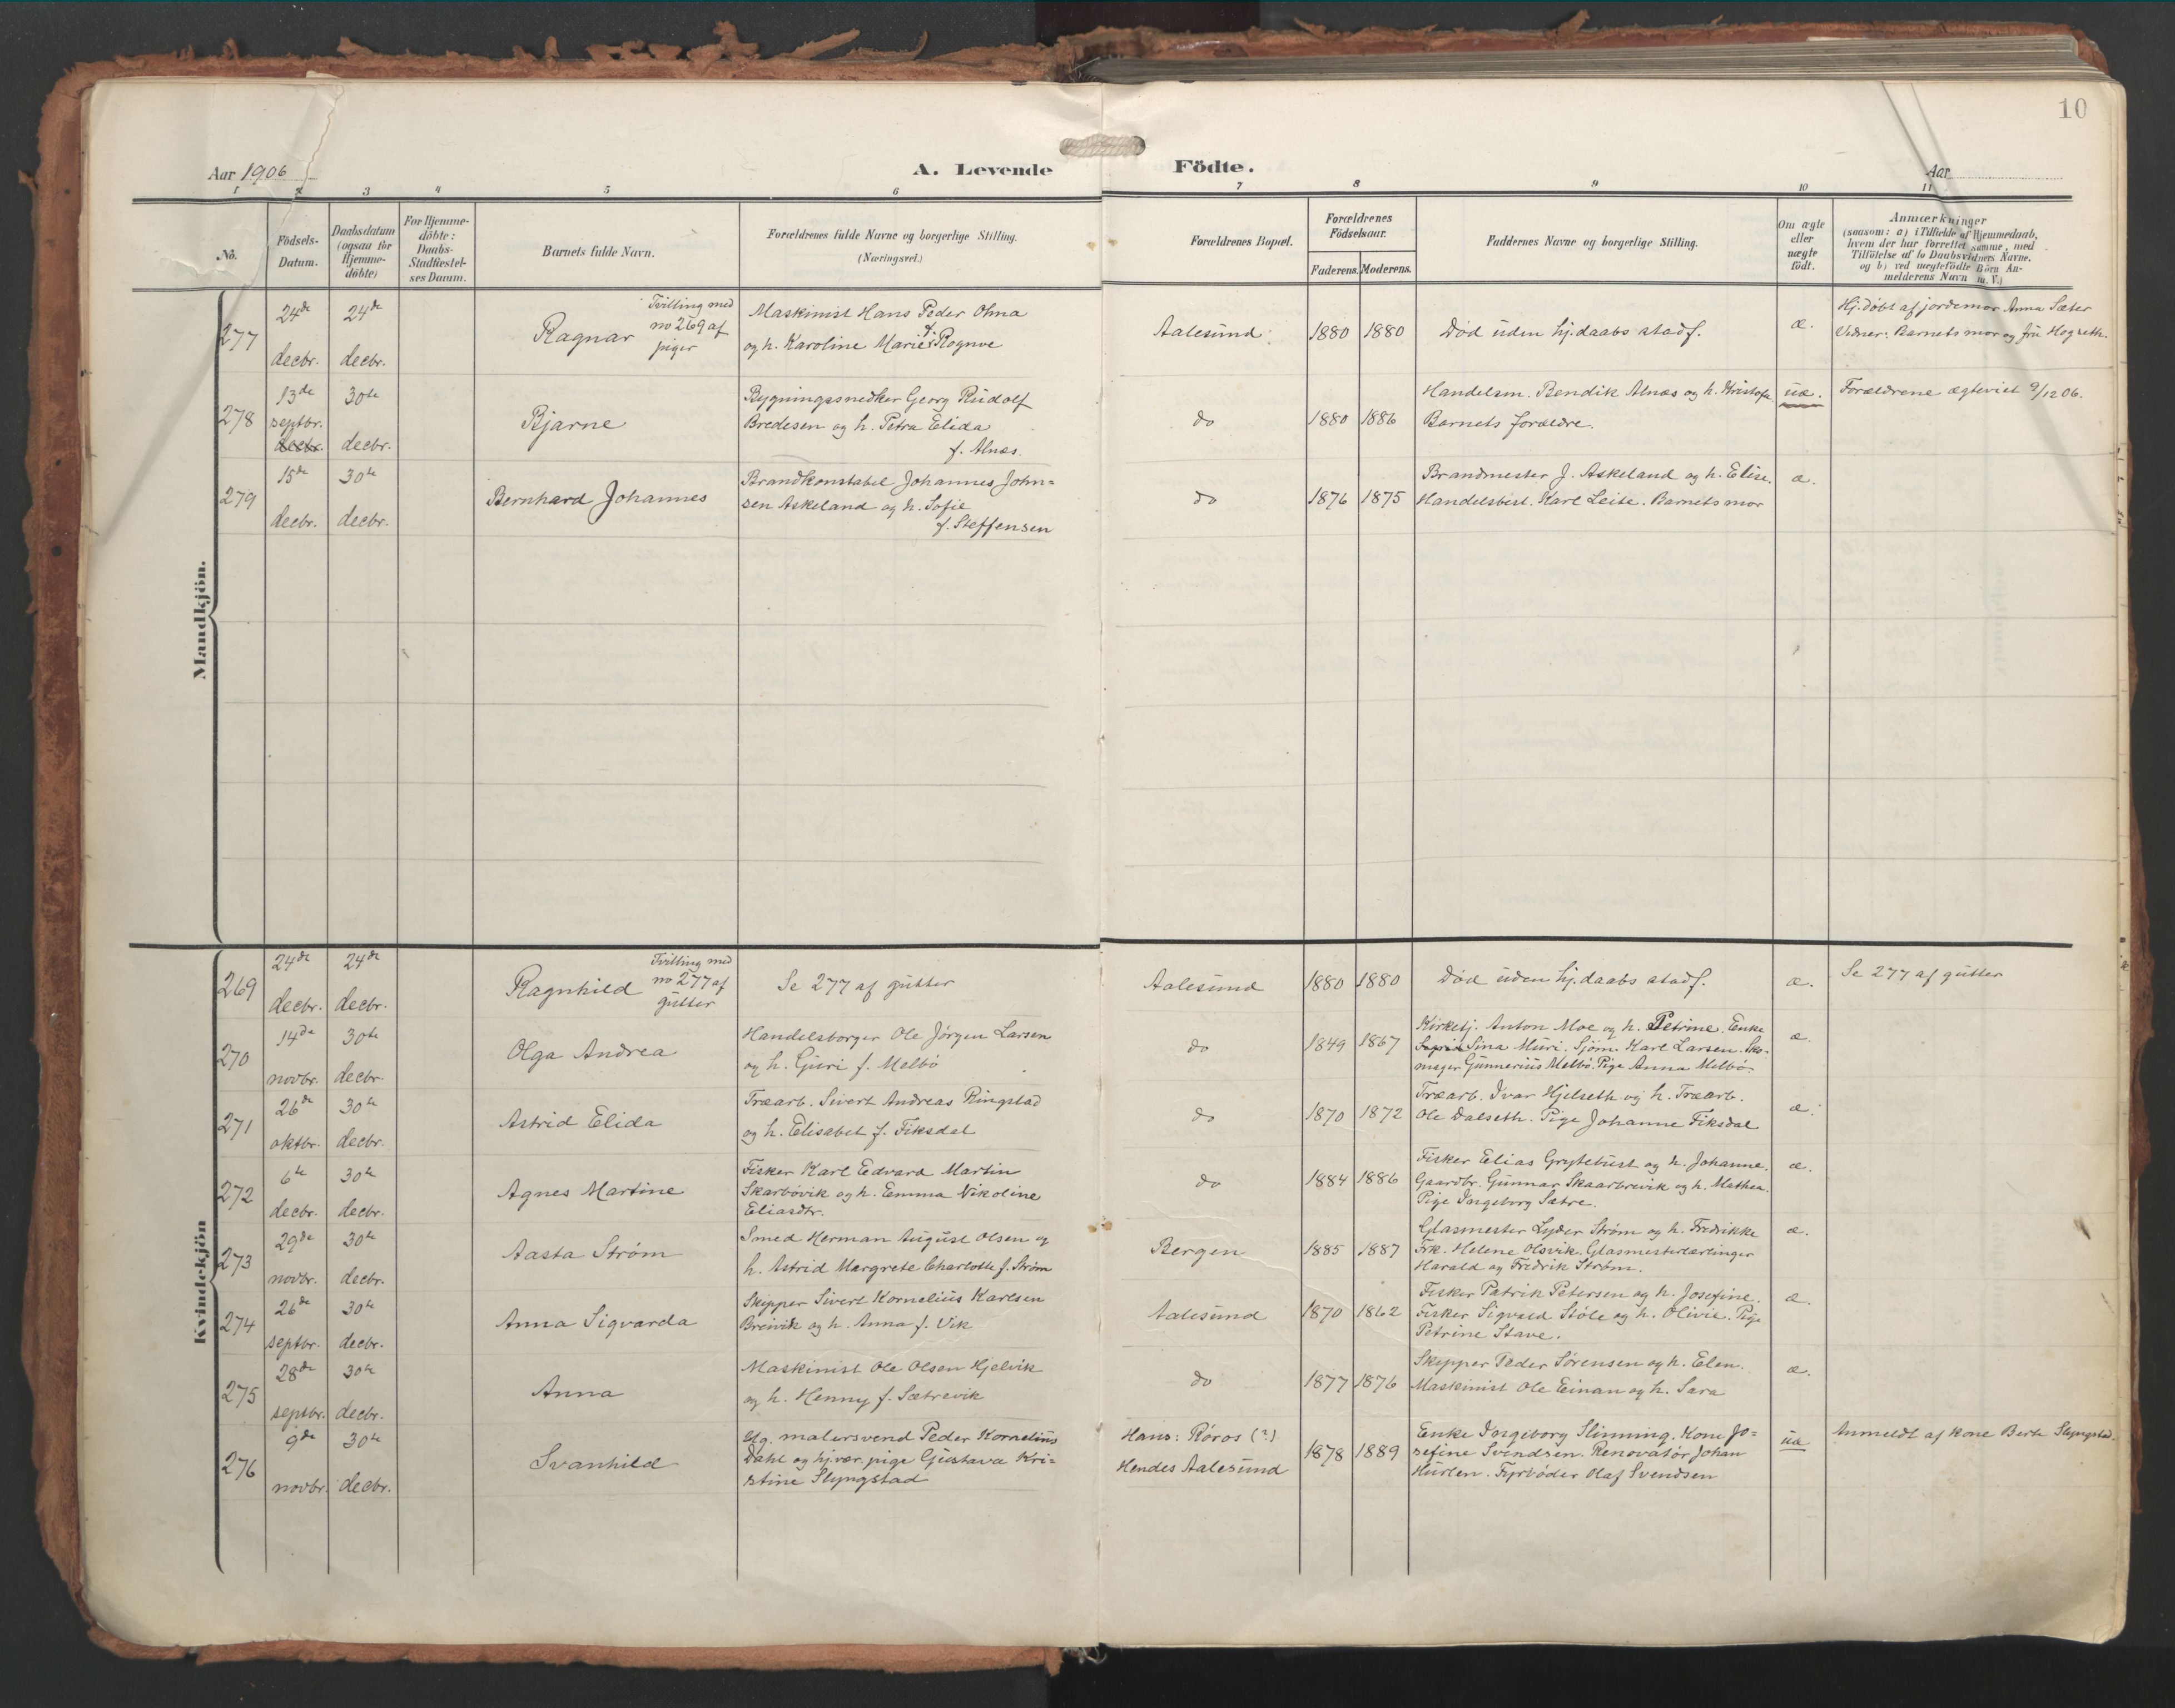 10
Aar 1906
A. Levende Födte.
Aar
1 2 3 4 5 6 7 8 9 10 11
No.
Födsels-
Datum.
Daabsdatum
(ogsaa for
Hjemme-
döbte)
For Hjemme-
döbte:
Daabs-
Stadfestel-
ses Datum.
Barnets fulde Navn.
Forældrenes fulde Navne og borgerlige Stilling.
(Næringsvei.)
Forældrenes Bopæl.
Forældrenes
Födselsaar.
Faderens. Moderens.
Faddernes Navne og borgerlige Stilling.
Om ægte
eller
uægte
födt.
Anmærkninger
(saasom: a) i Tilfælde af Hjemmedaab,
hvem der har forrettet samme, med
Tilföielse af to Daabsvidners Navne.
og b) ved uægtefödte Börn An-
melderens Navn m. V.)
Mandkjön.
277
24de
decbr.
24de
decbr.
Ragnar
Tvilling med
no 269 af
piger
Maskinist Hans Peder Ohna
og h. Karoline Marie f. Rognve
Aalesund.
1880 1880
Død uden hj.daabs stadf.
æ.
Hj.døbt af jordemor Anna Sæter
Vidner: Barnets mor og fru Hogseth.
278
13de
septbr.
decbr.
30te
decbr.
Bjarne
Bygningssnedker Georg Rudolf
Bredesen og h. Petra Elida
f. Alnæs.
do
1880 1886
Handelsm. Bendik Alnæs og h. Kristofa
Barnets forældre.
uæ.
Forældrene ægteviet 9/12 06.
279
15de
decbr.
30te
decbr.
Bernhard Johannes
Brandkonstabel Johannes John=
sen Askeland og h. Sofie
f. Steffensen
do
1876 1875
Brandmester J. Askeland og h. Elise.
Handelsbest. Karl Leite. Barnets mor
æ.
Kvindekjön
269
24de
decbr.
24de
decbr.
Ragnhild
Tvilling med
no 277 af
gutter
Se 277 af gutter
Aalesund
1880 1880
Død uden hj.daabs stadf.
æ.
Se 277 af gutter
270
14de
novbr.
30te
decbr.
Olga Andrea
Handelsborger Ole Jørgen Larsen
og h. Guri f. Melbö
do
1849 1867
Kirketj. Anton Moe og h. Petrine. Enke
Sina Muri. Sjöm. Karl Larsen. Sko-
mager Gunnerius Melbö. Pige Anna Melbö.
æ.
271
26de
oktbr.
30te
decbr.
Astrid Elida
Træarb. Sivert Andreas Ringstad
og h. Elisabet f. Fiksdal
do
1870 1872
Træarb. Ivar Hjelseth og h. Træarb.
Ole Dalseth. Pige Johanne Fiksdal
æ.
272
6te
decbr.
30te
decbr.
Agnes Martine
Fisker Karl Edvard Martin
Skarbövik og h. Emma Nikoline
Eliasdtr.
do
1884 1886
Fisker Elias Grytebust og h. Johanne.
Gaardbr. Gunnar Skaarbrevik og h. Mathea.
Pige Ingeborg Sætre.
æ.
273
29de
novbr.
30te
decbr.
Aasta Strøm
Smed Herman August Olsen og
h. Astrid Margrete Charlotte f. Strøm
Bergen
1885 1887
Glasmester Lyder Strøm og h. Fredrikke
Frk. Helene Olsvik. Glasmesterlærlinger
Harald og Fredrik Strøm.
æ.
274
26de
septbr.
30te
decbr.
Anna Sigvarda
Skipper Sivert Kornelius Karlsen
Breivik og h. Anna f. Vik
Aalesund
1870 1862
Fisker Patrik Petersen og h. Josefine.
Fisker Sigvald Støle og h. Olivie. Pige
Petrine Stave.
æ.
275
28de
septbr.
30te
decbr.
Anna
Maskinist Ole Olsen Hjelvik
og h. Henny f. Sætrevik
do
1877 1876
Skipper Peder Sørensen og h. Elen.
Maskinist Ole Einan og h. Sara
æ.
276
9de
novbr.
30te
decbr.
Svanhild
Ug. malersvend Peder Kornelius
Dahl og hj.vær. pige Gustava Kri=
stine Slyngstad
Hans: Röros (?)
Hendes Aalesund
1878 1889
Enke Ingeborg Slinning. Kone Jo=
sefine Svendsen. Renovatör Johan
Hurlen. Fyrböder Olaf Svendsen
uæ
Anmeldt af kone Berte Slyngstad.